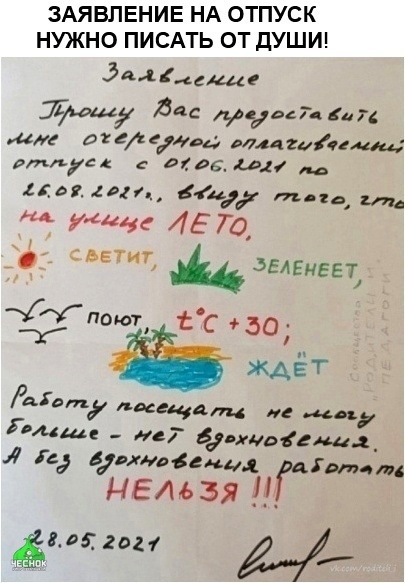 ЗАЯВЛЕНИЕ НА ОТПУСК
НУЖНО ПИСАТЬ ОТ ДУШИ!
Заявление
Прошу Вас предоставить
мне очередной оплачиваемый
отпуск с 01.06.2021 по
26.08.2021г., ввиду того, что
на улице ЛЕТО,
СВЕТИТ,
ЗЕЛЕНЕЕТ,
ПОЮТ, t°C +30;
ЖДЁТ
Работу посещать не могу
больше - нет вдохновения.
А без вдохновения работать
НЕЛЬЗЯ !!!
28.05.2021
ЧЕСНОК
Сообщество
"РОДИТЕЛИ И
ПЕДАГОГИ"